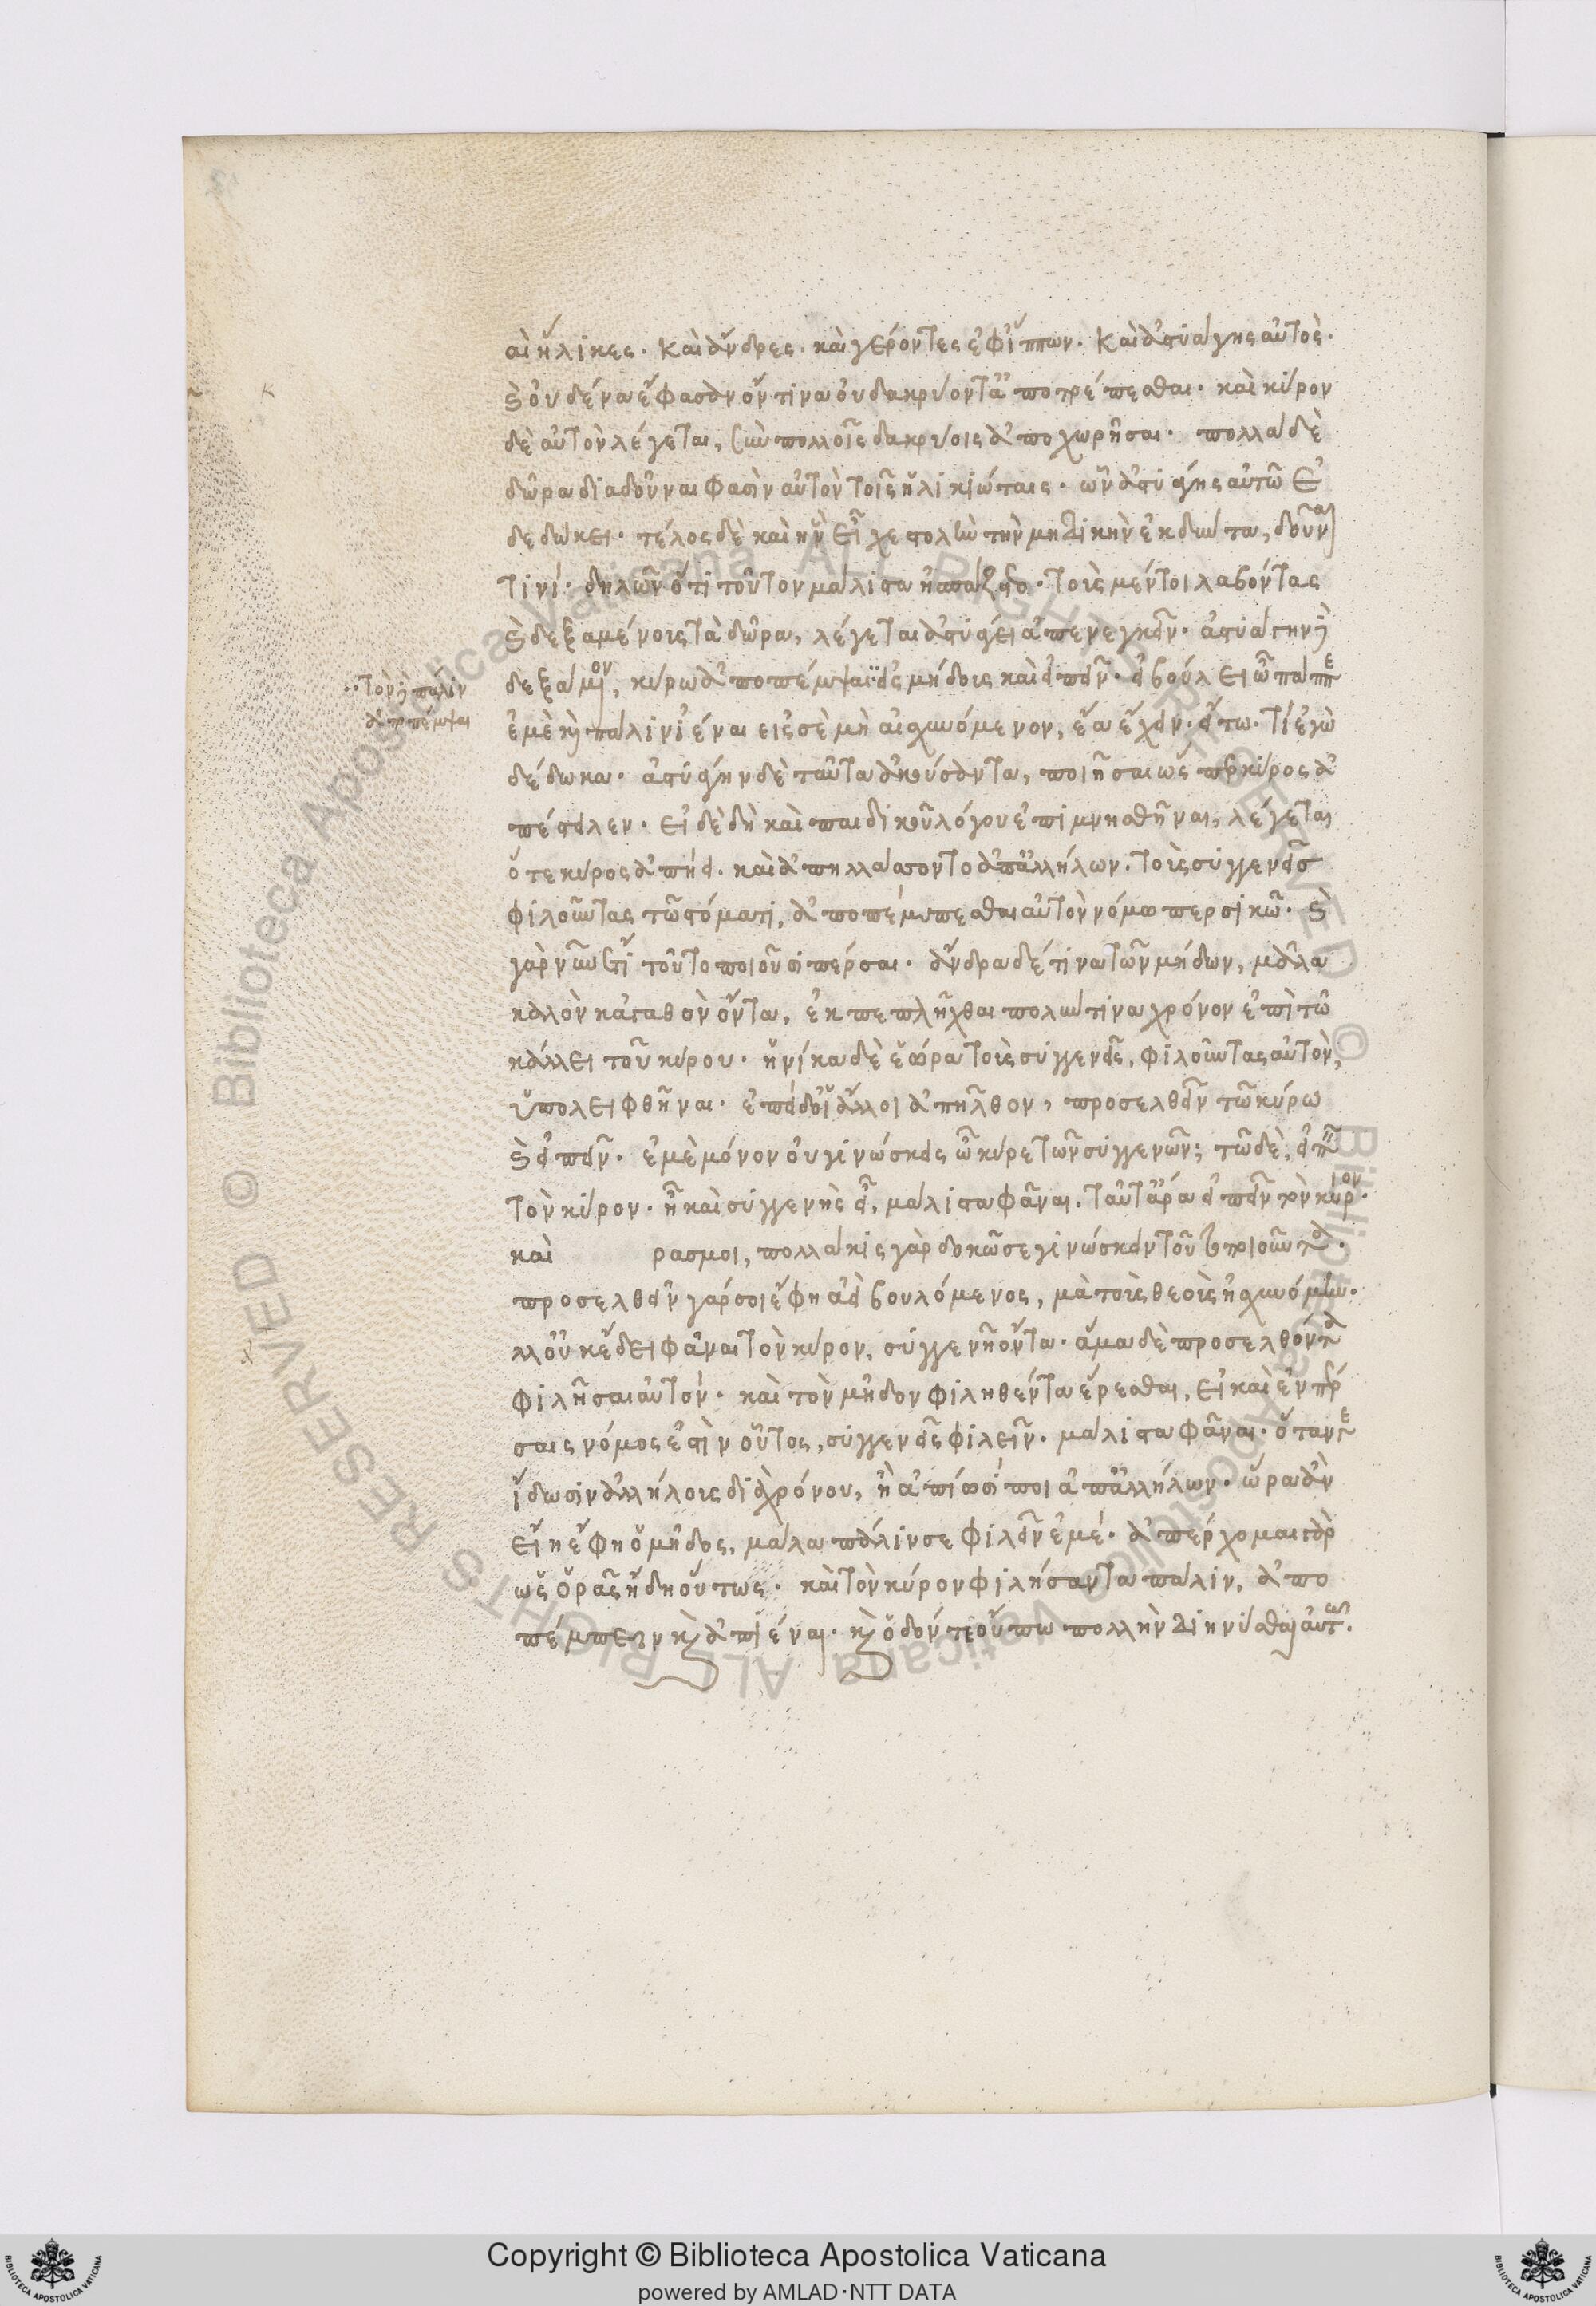 αἱ ἥλικες· καὶ ἄνδρες· καὶ γέροντες ἐφ' ἵππων· καὶ ἀστυάγης αὐτός·
καὶ οὐδένα ἔφασαν ὅντινα οὐ δακρύοντ' ἀποτρέπεσθαι· καὶ κύρον
δὲ αὐτὸν λέγεται, σὺν πολλοῖς δακρύοις ἀποχωρῆσαι· πολλὰ δὲ
δῶρα διαδοῦναι φασὶν αὐτὸν τοῖς ἡλικιώταις· ὧν ἀστυάγης αὐτῶ ἐ
δεδώκει· τέλος δὲ καὶ ἣν εἶχε στολὴν τὴν μηδικὴν ἐκδύντα, δοῦναι
τινί· δηλῶν ὅτι τοῦτον μάλιστα ἠσπάζετο· τοὺς μέντοι λαβόντας
καὶ δεξαμένους τὰ δῶρα, λέγεται ἀστυάγει ἀπενεγκεῖν· ἀστυάγην δὲ
δεξάμενον, κύρω ἀποπέμψαι
τὸν δὲ πάλιν
ἀποπέμψαι
εἰς μήδους καὶ εἰπεῖν· εἰ βούλει ὦ πάππε
ἐμὲ καὶ πάλιν ἰέναι εἰς σὲ μὴ αἰσχυνόμενον, ἔα ἔχειν· εἴ τω τι ἐγὼ
δέδωκα· ἀστυάγην δὲ ταῦτα ἀκούσαντα, ποιῆσαι ὥσπερ κύρος ἀ
πέστειλεν· εἰ δὲ δὴ καὶ παιδικοῦ λόγου ἐπιμνησθῆναι, λέγεται
ὅτε κύρος ἀπήει· καὶ ἀπηλλάττοντο ἀπ' ἀλλήλων· τοὺς συγγενεῖς
φιλοῦντας τῶ στόματι, ἀποπέμπεσθαι αὐτὸν νόμω περσικῶ· καὶ
γὰρ νῦν ἔτι τοῦτο ποιοῦσι πέρσαι· ἄνδρα δέ τινα τῶν μήδων, μάλα
καλὸν κἀγαθὸν ὄντα, ἐκπεπλῆχθαι πολύν τινα χρόνον ἐπὶ τῶ
κάλλει τοῦ κύρου· ἡνίκα δὲ ἑώρα τοὺς συγγενεῖς, φιλοῦντας αὐτὸν,
ὑπολειφθῆναι· ἐπεὶ δ' οἱ ἄλλοι ἀπῆλθον, προσελθεῖν τῶ κύρω
καὶ εἰπεῖν· ἐμὲ μόνον οὐ γινώσκεις ὦ κύρε τῶν συγγενῶν; τῶ δὲ, εἰπεῖν
τὸν κύρον· ἦ καὶ συγγενὴς εἶ, μάλιστα φάναι· ταῦτ' ἄρα εἰπεῖν τὸν κύρον·
καὶ ρας μοι, πολλάκις γὰρ δοκῶ σε γινώσκειν τοῦτο ποιοῦντα·
προσελθεῖν γάρ σοι ἔφη ἀεὶ βουλόμενος, μὰ τοὺς θεοὺς ἠσχυνόμην·
ἀλλ' οὐκ ἔδει φάναι τὸν κύρον, συγγενῆ ὄντα· ἅμα δὲ προσελθόντα
φιλῆσαι αὐτόν· καὶ τὸν μῆδον φιληθέντα ἔρεσθαι, εἰ καὶ ἐν πέρ
σαις νόμος ἐστὶν οὗτος, συγγενεῖς φιλεῖν· μάλιστα φάναι· ὅταν γε
ἴδωσιν ἀλλήλους διὰ χρόνου, ἢ ἀπίωσί ποι ἀπ' ἀλλήλων· ὥρα ἂν
εἴη ἔφη ὁ μῆδος, μάλα πάλιν σε φιλεῖν ἐμέ· ἀπέρχομαι γὰρ
ὡς ὁρᾶς ἤδη οὕτως· καὶ τὸν κύρον φιλήσαντα πάλιν, ἀπο
πέμπειν καὶ ἀπιέναι· καὶ ὁδόν τε οὔπω πολλὴν διηνύσθαι αὐτοῖς·
Copyright © Biblioteca Apostolica Vaticana
powered by AMLAD·NTT DATA